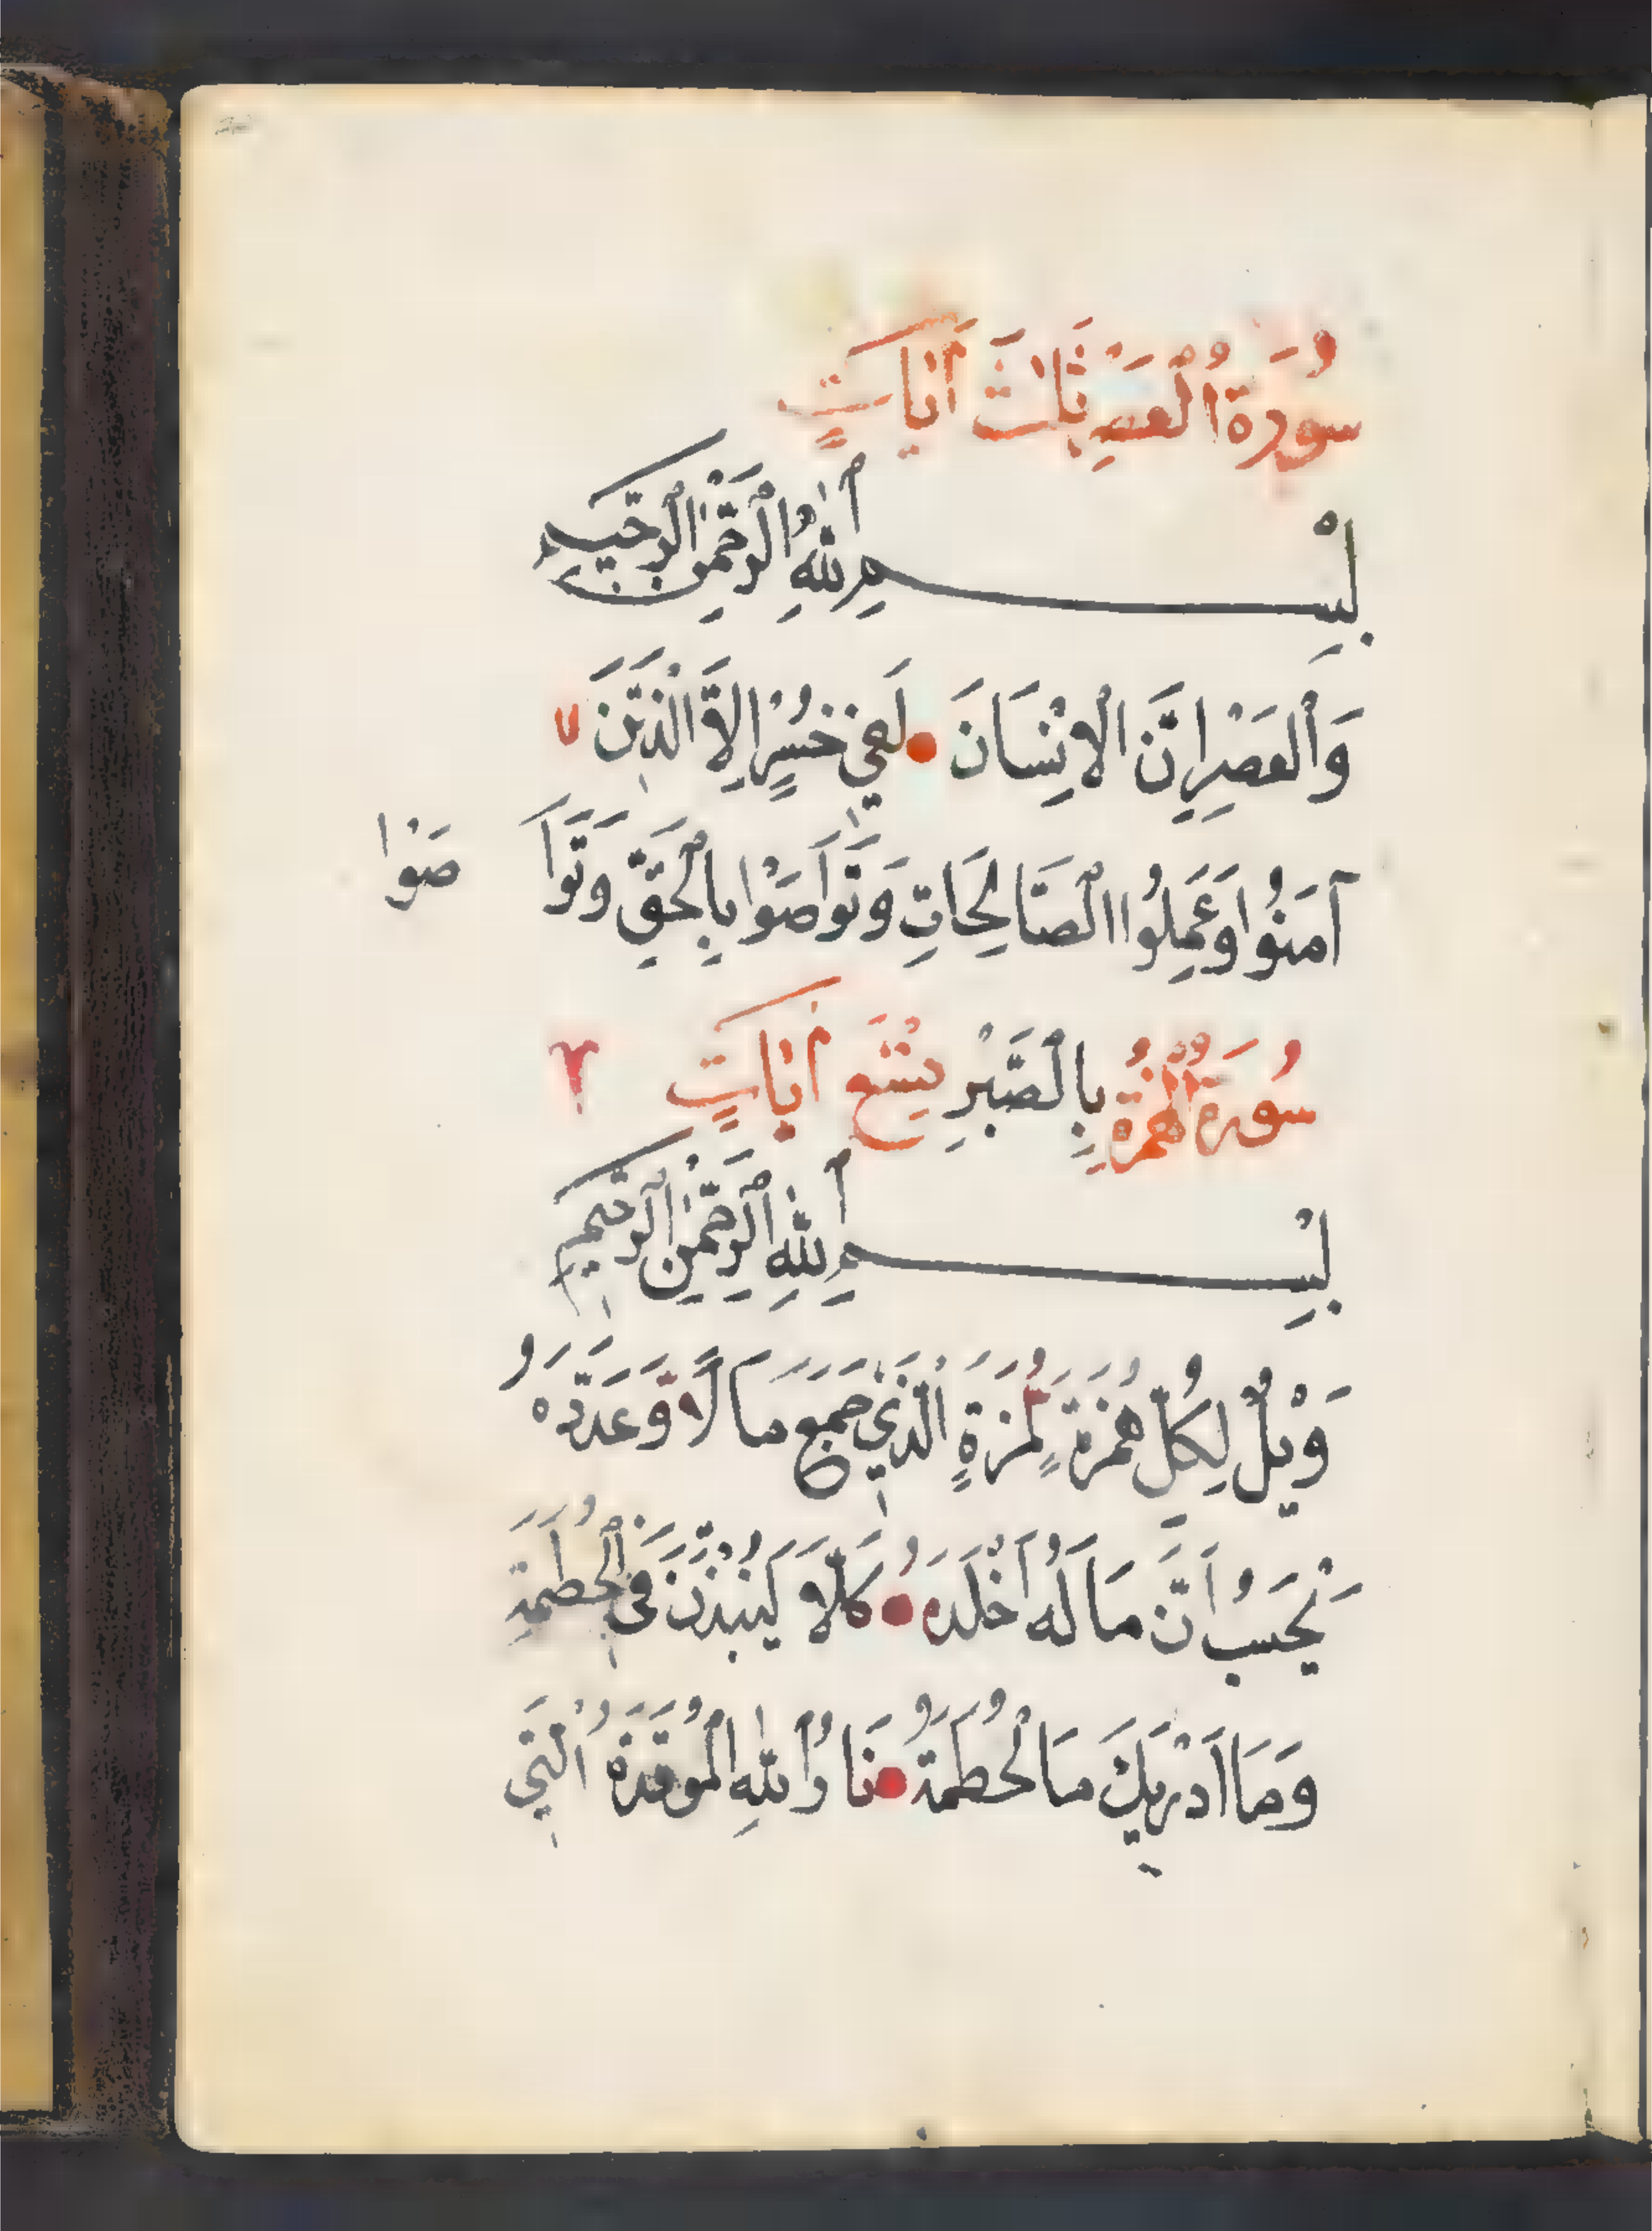 سُورَةُ الْعَصْرِ ثَلٰثَ اٰيَاتٍ
بِسْمِ اللّٰهِ الرَّحْمٰنِ الرَّحِيمِ
وَالْعَصْرِ اِنَّ الْاِنْسَانَ لَفِي خُسْرٍ اِلَّا الَّذِينَ
آمَنُوا وَعَمِلُوا الصَّالِحَاتِ وَتَوَاصَوْا بِالْحَقِّ وَتَوَا صَوْا
سُورَةُ الْهُمَزَةِ بِالصَّبْرِ تِسْعَ اٰيَاتٍ
بِسْمِ اللّٰهِ الرَّحْمٰنِ الرَّحِيمِ
وَيْلٌ لِكُلِّ هُمَزَةٍ لُمَزَةٍ الَّذِي جَمَعَ مَالًا وَعَدَّدَهُ
يَحْسَبُ اَنَّ مَالَهُ اَخْلَدَهُ كَلَّا لَيُنْبَذَنَّ فِي الْحُطَمَةِ
وَمَا اَدْرٰيكَ مَا الْحُطَمَةُ نَارُ اللّٰهِ الْمُوقَدَةُ الَّتِي